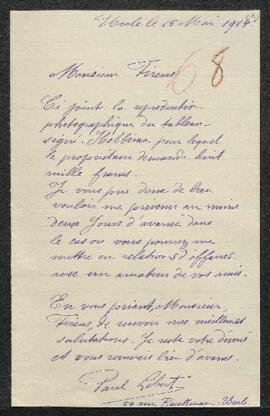 Uccle le 15 Mai 191
68
Monsieur Fierens
Ci joint la reproduction
photographique du tableau
signé Hobbema, pour lequel
le propriétaire demande huit
mille francs.
Je vous prie donc de bien
vouloir me prévenir au moins
deux jours d'avance dans
le cas ou vous pourriez me
mettre en relations d'affaires
avec un amateur de vos amis.
En vous priant, Monsieur
Fierens, de recevoir mes meilleures
salutations. Je reste votre dévoué
et vous remercie bien d'avance.
Paul
rue Uccle.